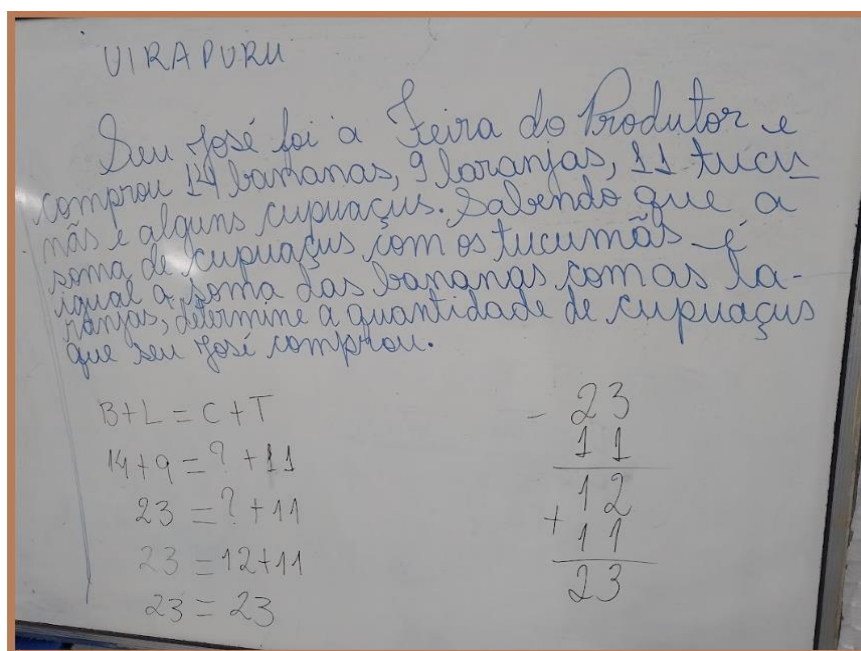 UIRAPURU
Seu José foi a Feira do Produtor e
comprou 14 bananas, 9 laranjas, 11 tucu
mãs e alguns cupuaçus. Sabendo que a
soma de cupuaçus com os tucumãs é
igual a soma das bananas com as la-
ranjas, determine a quantidade de cupuaçus
que seu José comprou.
B+L=C+T
14+9=?+11
23=?+11
23=12+11
23=23
- 23
11
12
+ 11
23